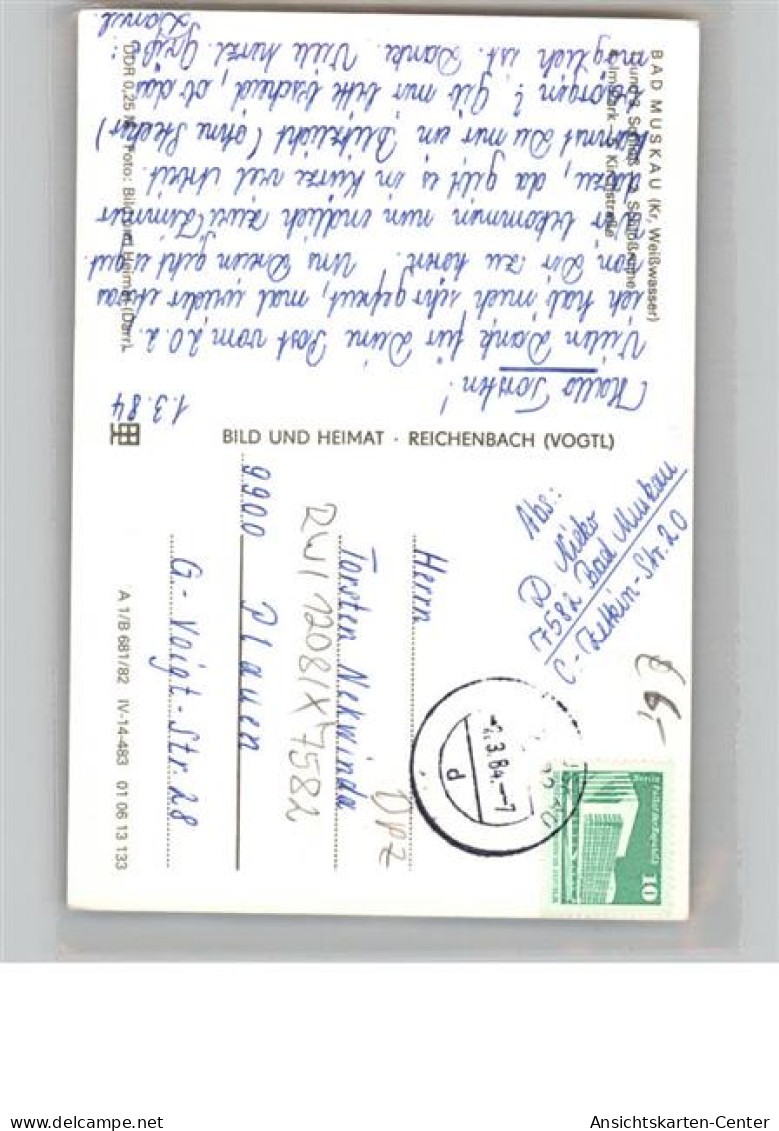 BAD MUSKAU (Kr. Weißwasser)
1 und 3 Schloß 2 Schloßruine
4 Im Park 5 Kirchstraße
DDR 0,25 M Foto: Bild und Heimat (Darr)
1.3.84
Hallo Torsten!
Vielen Dank für Deine Post vom 20.2.
ich hab mich sehr gefreut, mal wieder etwas
von Dir zu hören. Uns Dreien geht's gut.
Wir bekommen nun endlich zwei Zimmer
dazu, da gibt es in Kürze viel Arbeit.
Kannst Du mir ein Blitzlicht (ohne Stecker)
borgen? Gib mir bitte Bescheid, ob das
möglich ist. Danke. Viele herzl. Grüße
BILD UND HEIMAT · REICHENBACH (VOGTL)
Abs.:
7582 Bad Muskau
C.-Zetkin-Str. 20
Herrn
Torsten Nekwinda
9900 Plauen
G.-Voigt-Str. 28
7582
€ 6,-
3.84.-7
d
10
A 1/B 681/82 IV-14-483 01 06 13 133
Ansichtskarten-Center